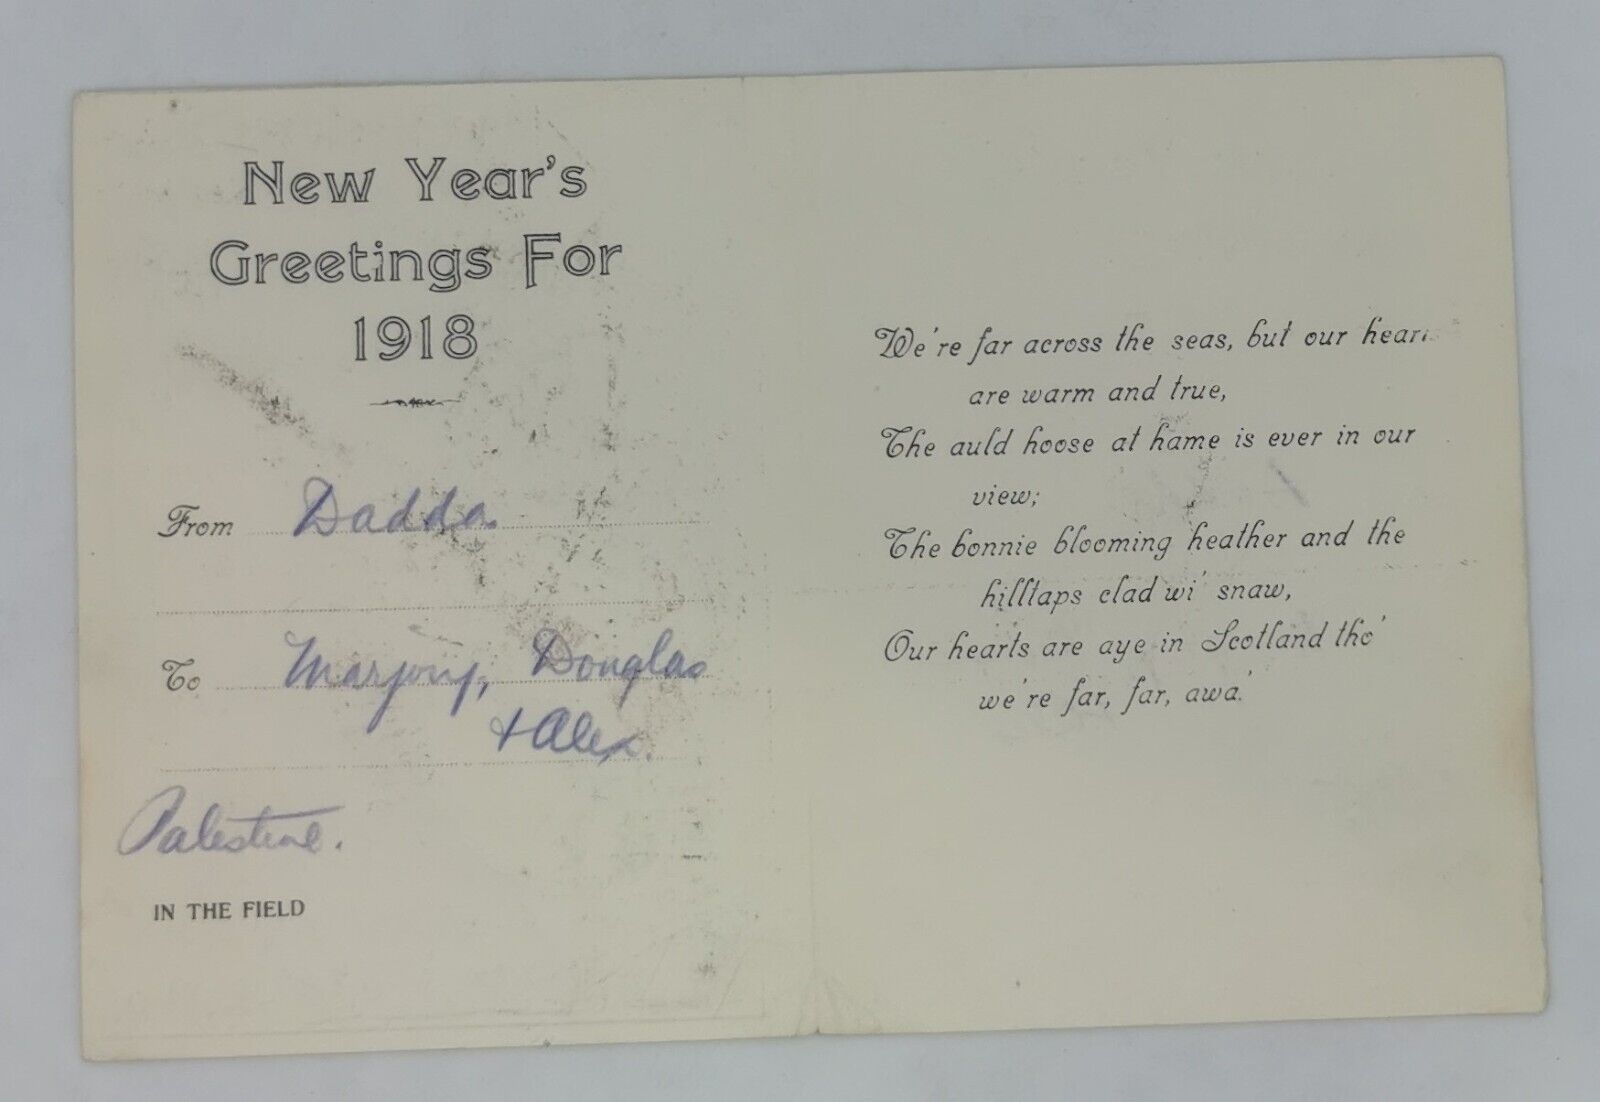 New Year's
Greetings For
1918
From Dadda.
To Marjory, Douglas
+ Alex.
Palestine.
IN THE FIELD
We're far across the seas, but our
are warm and true,
The auld hoose at hame is ever in our
view;
The bonnie blooming heather and the
hilltaps clad wi' snaw,
Our hearts are aye in Scotland tho'
we're far, far, awa.'